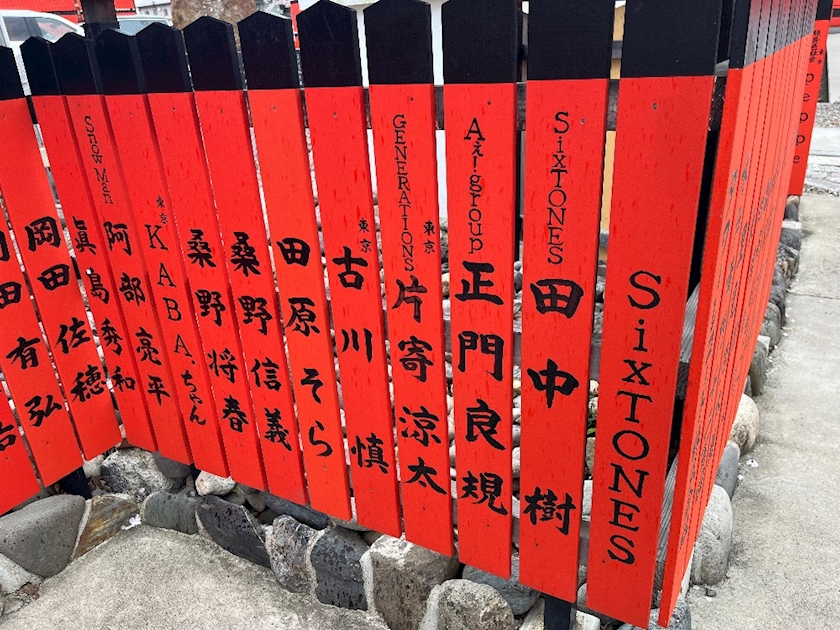 SixTONES
SixTONES
田中 樹
Aぇ! group
正門良規
東京
GENERATIONS
片寄涼太
東京
古川 慎
田原そら
桑野信義
桑野将春
東京
KABA.ちゃん
Snow Man
阿部亮平
眞島秀和
岡田佐穂
田有弘
peppe